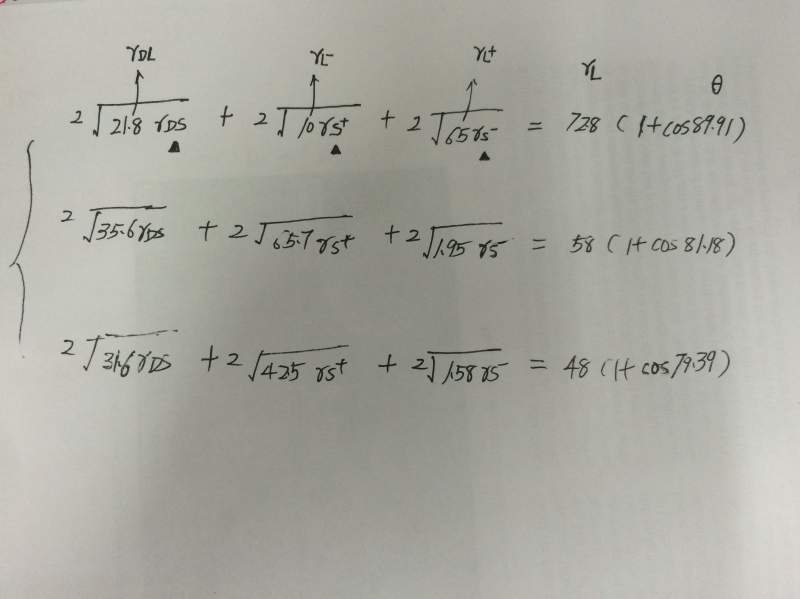 γDL γL- γL+ γL θ
2√21.8 γDS + 2√10 γS+ + 2√65 γS- = 728 (1+cos89.91)
2√35.6 γDS + 2√65.7 γS+ + 2√1.95 γS- = 58 (1+cos 81.18)
2√31.6 γDS + 2√42.5 γS+ + 2√1.58 γS- = 48 (1+cos79.39)